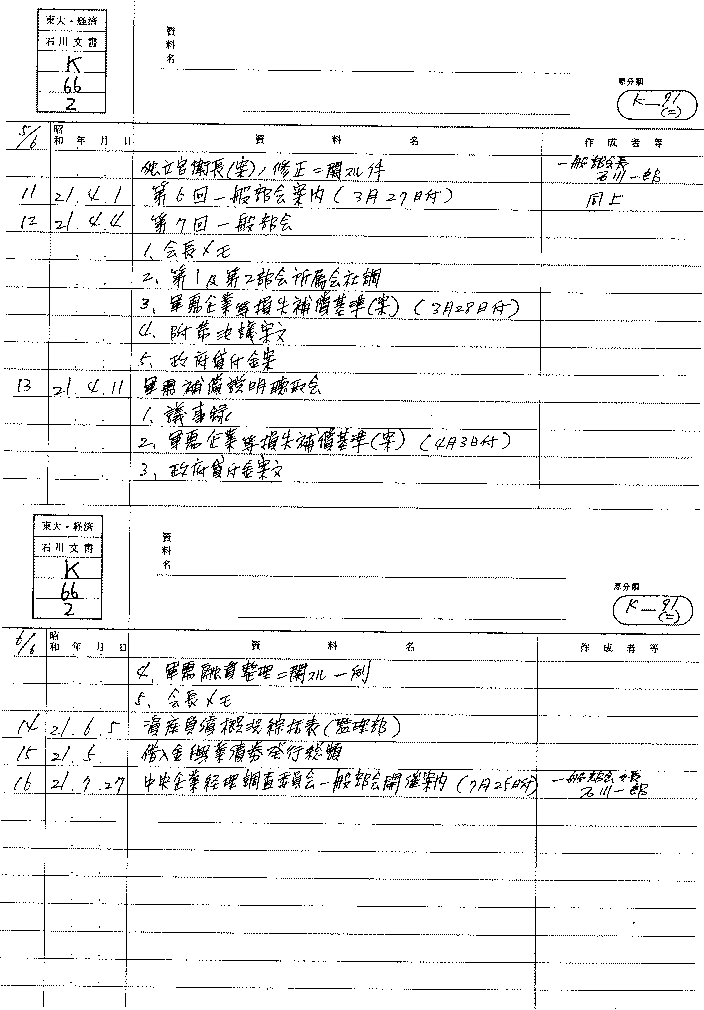 東大・経済
石川文書
K
66
2
資料名
原分類
K-91
(二)
5/6 昭和 年 月 日 資料名 作成者等
(案)ノ修正ニ関スル件 一般部会長 石川一郎
11 21.4.1 第6回一般部会案内(3月27日付) 同上
12 21.4.4 第7回一般部会
1. 会長メモ
2. 第1及第2部会所属会社調
3. 軍需企業等損失補償基準(案)(3月28日付)
4. 附帯決議案文
5. 政府貸付金案
13 21.4.11 軍需補償説明聴取会
1. 議事録
2. 軍需企業等損失補償基準(案)(4月3日付)
3. 政府貸付金案文
東大・経済
石川文書
K
66
2
資料名
原分類
K-91
(二)
6/6 昭和 年 月 日 資料名 作成者等
4. 軍需融資整理ニ関スル一例
5. 会長メモ
14 21.6.5 資産負債概況綜括表(監理部)
15 21.5. 借入金興業債券発行総額
16 21.7.27 中央企業経理調査委員会一般部会開催案内(7月25日付) 一般部会長 石川一郎